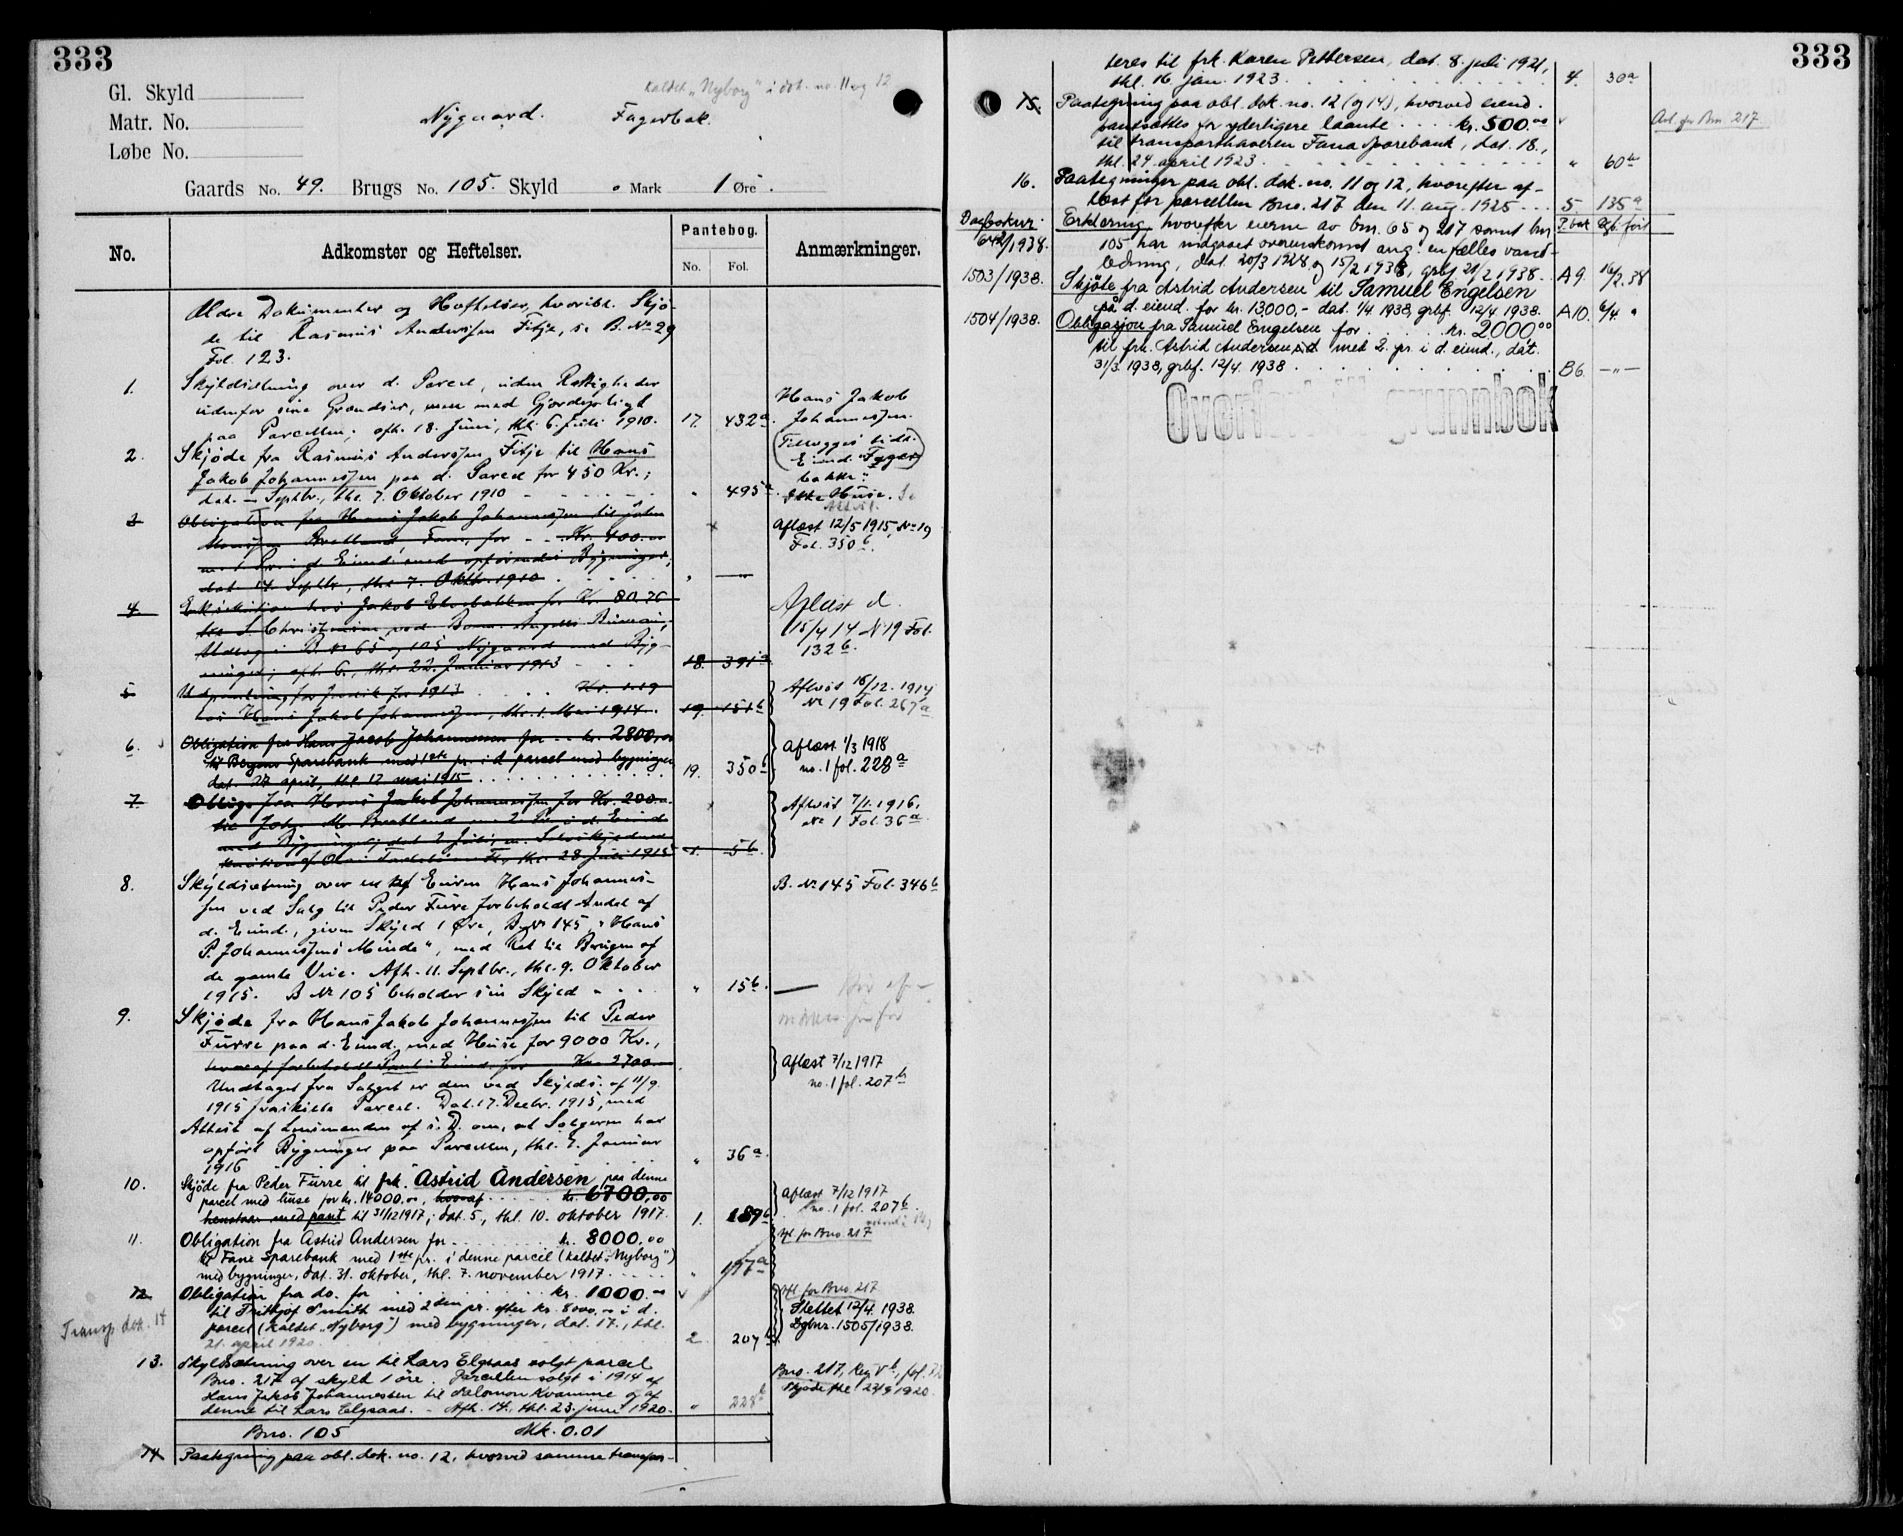 333
Gl. Skyld
Matr. No.
Løbe No.
kaldet „Nyborg" i dok. no. 11 og 12
Nygaard. Fagerbak.
Gaards No. 49. Brugs No. 105. Skyld " Mark 1 Øre.
No. Adkomster og Heftelser. Pantebog. No. Fol. Anmærkninger.
Ældre Dokumenter og Heftelser, hvoribl. Skjø-
de til Rasmus Anderssen Fitje, se B. No 29
Fol. 123.
1. Skyldsetning over d. Parcel, uden Rettigheder
udenfor sine Grændser, men med Gjerdepligt
paa Parcellen; afh. 18. Juni, thl. 6. Juli 1910. 17. 432a.
Hans Jakob
Johannessen.
2. Skjøde fra Rasmus Anderssen Fitje til Hans
Jakob Johannessen paa d. Parcel for 450 Kr.;
dat. — Septbr., thl. 7. Oktober 1910 " 495a.
(Tillægges tidl.
Eiend. Fager-
bakke".
Ikke Huse. Se
Attest.
3 Obligation fra Hans Jakob Johannessen til John
Monssen Bratland Fane, for Kr. 400.00
m. 1 Pr. i d. Eiend. med opførendes Bygninger,
dat. 14 Septbr., thl. 7. Oktbr. 1910 " —"—
Aflæst 12/5 1915, No 19
Fol. 350b.
4 Exekution hos Jakob Elvebakken for Kr. 80,76
Udlæg i B No 65 og 105 Nygaard med Byg-
ninger; afh. 6., thl. 22. Januar 1913 18. 391a
Aflæst d.
15/4 14 No 19 Fol.
132b.
5 Udpantning for 1913 Kr. 1.19
hos Hans Jakob Johannessen, thl. 1. Mai 1914. 19. 151b
Aflæst 16/12. 1914
No 19 Fol. 267a
6. Obligation fra Hans Jacob Johannessen for kr. 2800,00
til Bergens Sparebank med 1ste pr. i d. parcel med bygninger,
dat. 27 april, thl. 12 mai 1915 19. 350b
Aflæst 1/3 1918
no. 1 fol. 228a
7. Obliga. fra Hans Jakob Johannessen for Kr. 200.00
til Johs. M. Bratland med 2 Pr. i d. Eiend.
med Bygninger; dat. 2 Juli, m. Selvskyldner-
kaution af thl. 28 Juli 1915 1. 5b.
Aflæst 7/1. 1916,
No 1 Fol. 36a.
8. Skyldsetning over en af Eieren Hans Johannes-
sen ved Salg til Peder Furre forbeholdt Andel af
d. Eiend., given Skyld 1 Øre, B. No 145, „Hans
P. Johannessens Minde", med Ret til Brugen af
de gamle Veie. Afh. 11. Septbr., thl. 9. Oktober
1915. B No 105 beholder sin Skyld " 15b.
B. No 145 Fol. 346b
9. Skjøde fra Hans Jakob Johannessen til Peder
Furre paa d. Eiend. med Huse for 9000 Kr.,
hvoraf forbeholdt Pant i Eiend. for Kr. 2700.
Undtaget fra Salget er den ved Skylds. af 11/9.
1915 fraskilte Parcel. Dat. 17. Decbr. 1915, med
Attest af Lensmanden af s. D. om, at Sælgeren har
opført Bygninger paa Parcellen, thl. 7. Januar
1916 " 36a.
Aflæst 7/12 1917
no. 1 fol. 207b
10. Skjøde fra Peder Furre til frk. Astrid Andersen paa denne
parcel med huse for kr. 14000.00, hvoraf kr. 6700,00
henstaar med pant til 31/12 1917; dat. 5, thl. 10. oktober 1917. 1. 189b
Aflæst 7/12 1917
no. 1 fol. 207b
11. Obligation fra Astrid Andersen for kr. 8000,00
til Fane Sparebank med 1ste pr. i denne parcel (kaldet „Nyborg")
med bygninger, dat. 31. oktober, thl. 7. november 1917. " 197a
Afl. for Bno. 217
Transp. dok. 14
12 Obligation fra do. for kr. 1000.00
til Frithjof Smith med 2den pr. efter kr. 8000.00 i d.
parcel (kaldet „Nyborg") med bygninger, dat. 17., thl.
21. april 1920. 2. 207b
Afl. for Bno. 217
Slettet 12/4. 1938.
Dgbnr. 1505/1938.
13. Skyldsætning over en til Lars Elgsaas solgt parcel
Bno. 217 af skyld 1 øre. Parcellen solgt i 1914 af
Hans Jakob Johannessen til Salomon Kvamme og af
denne til Lars Elgsaas. - Afh. 14., thl. 23. juni 1920. " 228b
Bno. 217, Reg. Vb, fol.
Skjøde thl. 22/9 1920.
Bno. 105 Mk. 0.01
14 Paategning paa obl. dok. no. 12, hvorved samme transpor-
333
teres til frk. Karen Pettersen, dat. 8. juli 1921,
thl. 16. jan. 1923. 4. 30a
15. Paategning paa obl. dok. no. 12 (og 14), hvorved eiend.
pantsættes for yderligere laante kr. 500.00
til transporthaveren Fana Sparebank, dat. 18.,
thl. 24. april 1923. " 60b
Avl. for Bno 217
16. Paategninger paa obl. dok. no. 11 og 12, hvorefter af-
læst for parcellen Bno. 217 den 11. aug. 1925 5. 135a
Dagboknr.
642/1938. Erklæring, hvorefter eierne av bnr. 65 og 217 samt bnr.
105 har indgaaet overenskomst ang. en fælles vand-
ledning, dat. 20/3 1928 og 15/2 1938, grbf. 21/2 1938. A9. 16/2.38
1503/1938. Skjøte fra Astrid Andersen til Samuel Engelsen
på d. eiend. for kr. 13000,- dat. 1/4 1938, grbf. 12/4 1938. A10. 6/4. "
1504/1938. Obligasjon fra Samuel Engelsen for kr. 2000,00
til frk. Astrid Andersen med 2. pr. i d. eiend., dat.
31/3. 1938, grbf. 12/4. 1938 B6. —"—
Overført til grunnbok